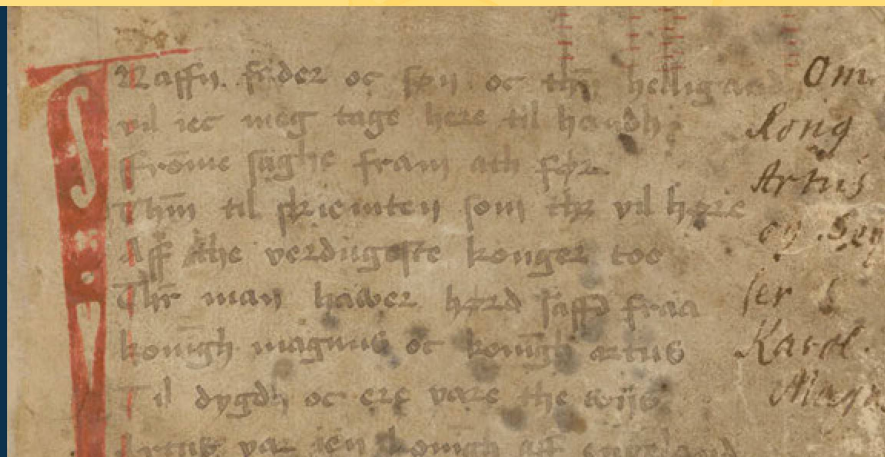 Naffn fader oc søn oc thn̄ helligand
vil iec meg tage here til handh
ffrōme saghe fram ath før
Thm̄ til skiemten som thz vil høre
Aff the verdugeste konger too
Thr̄ man hawer hørd saffd fraa
konīgh magnus oc konīgh artus
Til dygdh oc ere vare the wiis
Artus var ien konīgh aff engeland
Om
Kong
Artus
og Key
ser
Karol.
Magn